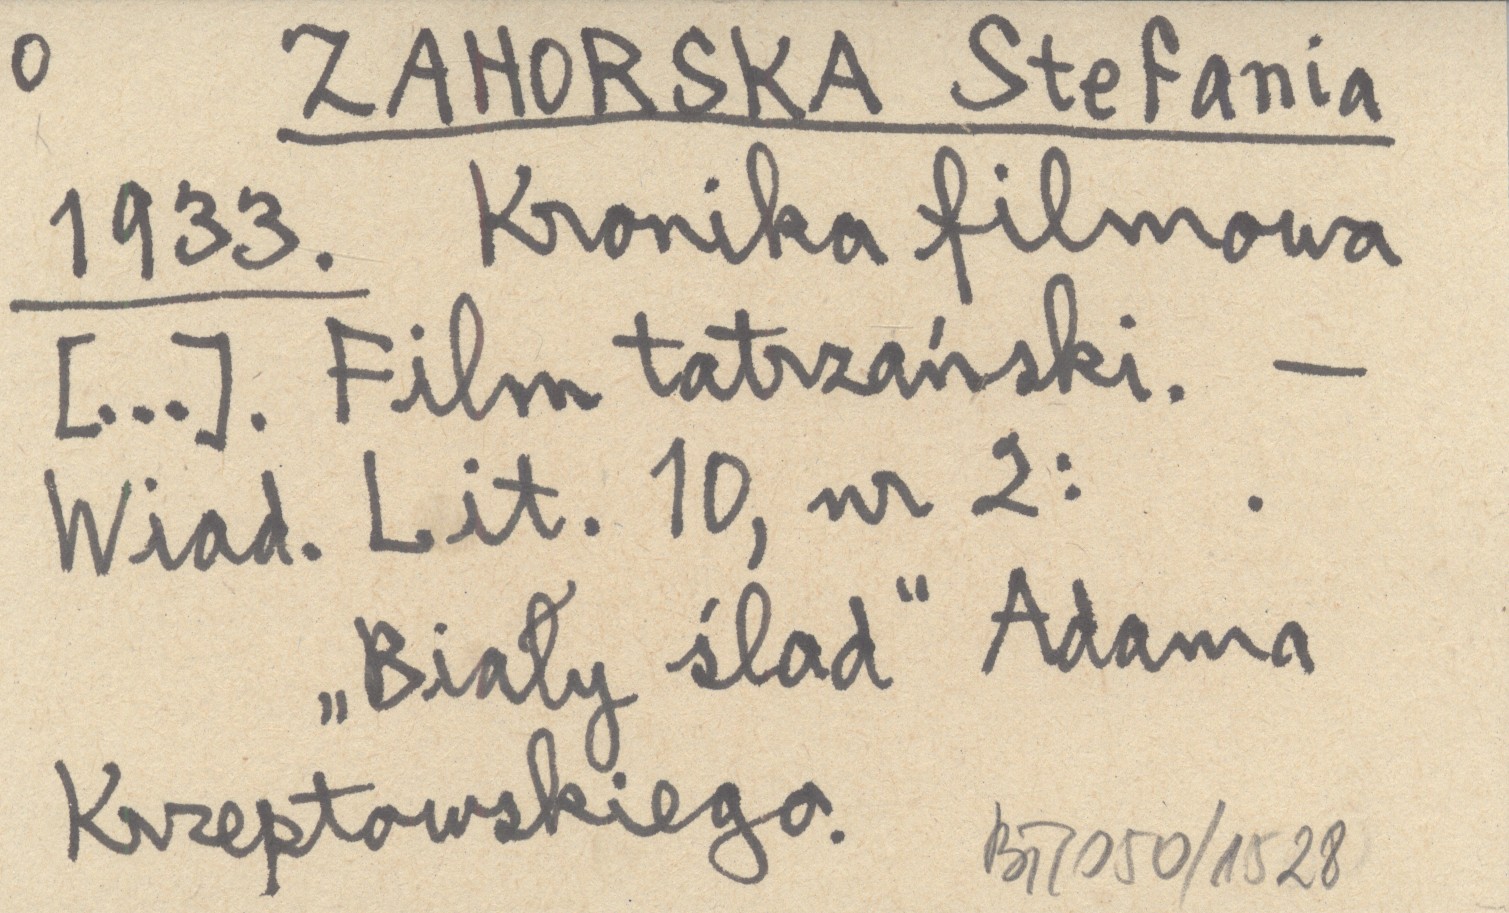 O ZAHORSKA Stefania
1933. Kronika filmowa
[...]. Film tatrzański. —
Wiad. Lit. 10, nr 2: .
„Biały ślad" Adama
Krzeptowskiego.
050/1528